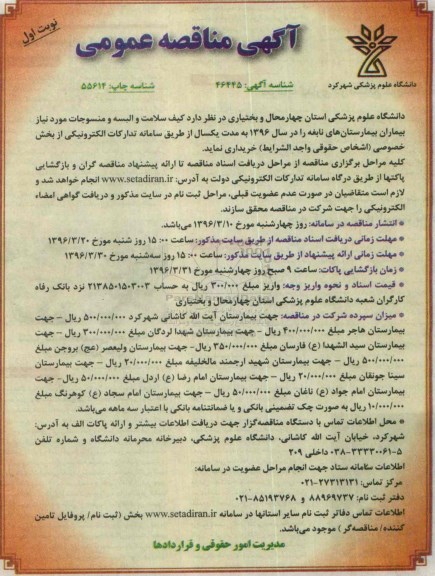 نوبت اول
آگهی مناقصه عمومی
دانشگاه علوم پزشکی شهرکرد
شناسه آگهی: ۴۶۴۴۵
شناسه چاپ: ۵۵۶۱۴
دانشگاه علوم پزشکی استان چهارمحال و بختیاری در نظر دارد کیف سلامت و البسه و منسوجات مورد نیاز
بیماران بیمارستان‌های تابعه را در سال ۱۳۹۶ به مدت یکسال از طریق سامانه تدارکات الکترونیکی از بخش
خصوصی (اشخاص حقوقی واجد الشرایط) خریداری نماید.
کلیه مراحل برگزاری مناقصه از مراحل دریافت اسناد مناقصه تا ارائه پیشنهاد مناقصه گران و بازگشایی
پاکتها از طریق درگاه سامانه تدارکات الکترونیکی دولت به آدرس: www.setadiran.ir انجام خواهد شد و
لازم است متقاضیان در صورت عدم عضویت قبلی، مراحل ثبت نام در سایت مذکور و دریافت گواهی امضاء
الکترونیکی را جهت شرکت در مناقصه محقق سازند.
* انتشار مناقصه در سامانه: روز چهارشنبه مورخ ۱۳۹۶/۳/۱۰ می‌باشد.
* مهلت زمانی دریافت اسناد مناقصه از طریق سایت مذکور: ساعت ۱۵:۰۰ روز شنبه مورخ ۱۳۹۶/۳/۲۰
* مهلت زمانی ارائه پیشنهاد از طریق سایت مذکور: ساعت ۱۵:۰۰ روز سه‌شنبه مورخ ۱۳۹۶/۳/۳۰
* زمان بازگشایی پاکات: ساعت ۹ صبح روز چهارشنبه مورخ ۱۳۹۶/۳/۳۱
* قیمت اسناد و نحوه واریز وجه: واریز مبلغ ۳۰۰/۰۰۰ ریال به حساب ۲۱۳۸۵۰۱۵۳۰۰۳ نزد بانک رفاه
کارگران شعبه دانشگاه علوم پزشکی استان چهارمحال و بختیاری
* میزان سپرده شرکت در مناقصه: جهت بیمارستان آیت الله کاشانی شهرکرد ۵۰۰/۰۰۰/۰۰۰ ریال – جهت
بیمارستان هاجر مبلغ ۴۰۰/۰۰۰/۰۰۰ ریال – جهت بیمارستان شهدا لردگان مبلغ ۳۰۰/۰۰۰/۰۰۰ ریال – جهت
بیمارستان سید الشهدا (ع) فارسان مبلغ ۳۵۰/۰۰۰/۰۰۰ ریال – جهت بیمارستان ولیعصر (عج) بروجن مبلغ
۵۰۰/۰۰۰/۰۰۰ ریال – جهت بیمارستان شهید ارجمند مالخلیفه مبلغ ۲۰/۰۰۰/۰۰۰ ریال – جهت بیمارستان
سینا جونقان مبلغ ۲۰/۰۰۰/۰۰۰ ریال – جهت بیمارستان امام رضا (ع) اردل مبلغ ۵۰/۰۰۰/۰۰۰ ریال – جهت
بیمارستان امام جواد (ع) ناغان مبلغ ۵۰/۰۰۰/۰۰۰ ریال – جهت بیمارستان امام سجاد (ع) کوهرنگ مبلغ
۱۰/۰۰۰/۰۰۰ ریال به صورت چک تضمینی بانکی و یا ضمانتنامه بانکی با اعتبار سه ماهه می‌باشد.
* محل اطلاعات تماس با دستگاه مناقصه‌گزار جهت دریافت اطلاعات بیشتر و ارائه پاکات الف به آدرس:
شهرکرد، خیابان آیت الله کاشانی، دانشگاه علوم پزشکی، دبیرخانه محرمانه دانشگاه و شماره تلفن
۵-۰۳۸-۳۳۳۳۰۰۶۱ داخلی ۲۰۹
اطلاعات سامانه ستاد جهت انجام مراحل عضویت در سامانه:
مرکز تماس: ۰۲۱-۲۷۳۱۳۱۳۱
دفتر ثبت نام: ۸۸۹۶۹۷۳۷ و ۰۲۱-۸۵۱۹۳۷۶۸
اطلاعات تماس دفاتر ثبت نام سایر استانها در سامانه www.setadiran.ir بخش (ثبت نام/ پروفایل تامین
کننده/ مناقصه‌گر) موجود می‌باشد.
مدیریت امور حقوقی و قراردادها